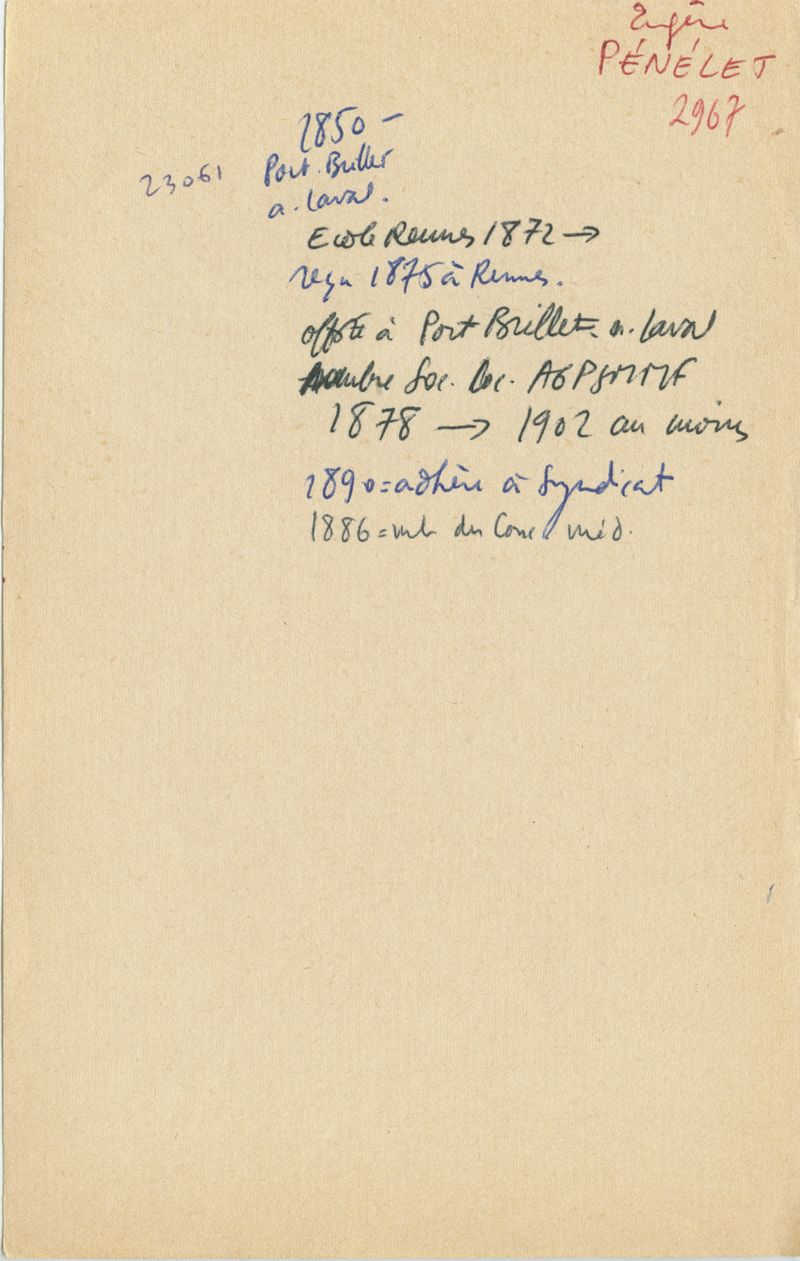 Eugène
PÉNÉLET
2967
1850 -
23061 Port. Brillet
a. Laval.
Ecole Rennes 1872 →
reçu 1875 à Rennes.
à Port Brillet. a. Laval
Soc. Loc. AGPSMMF
1878 → 1902 au moins
1890 = adhère à Syndicat
1886 = mb du Conc méd.